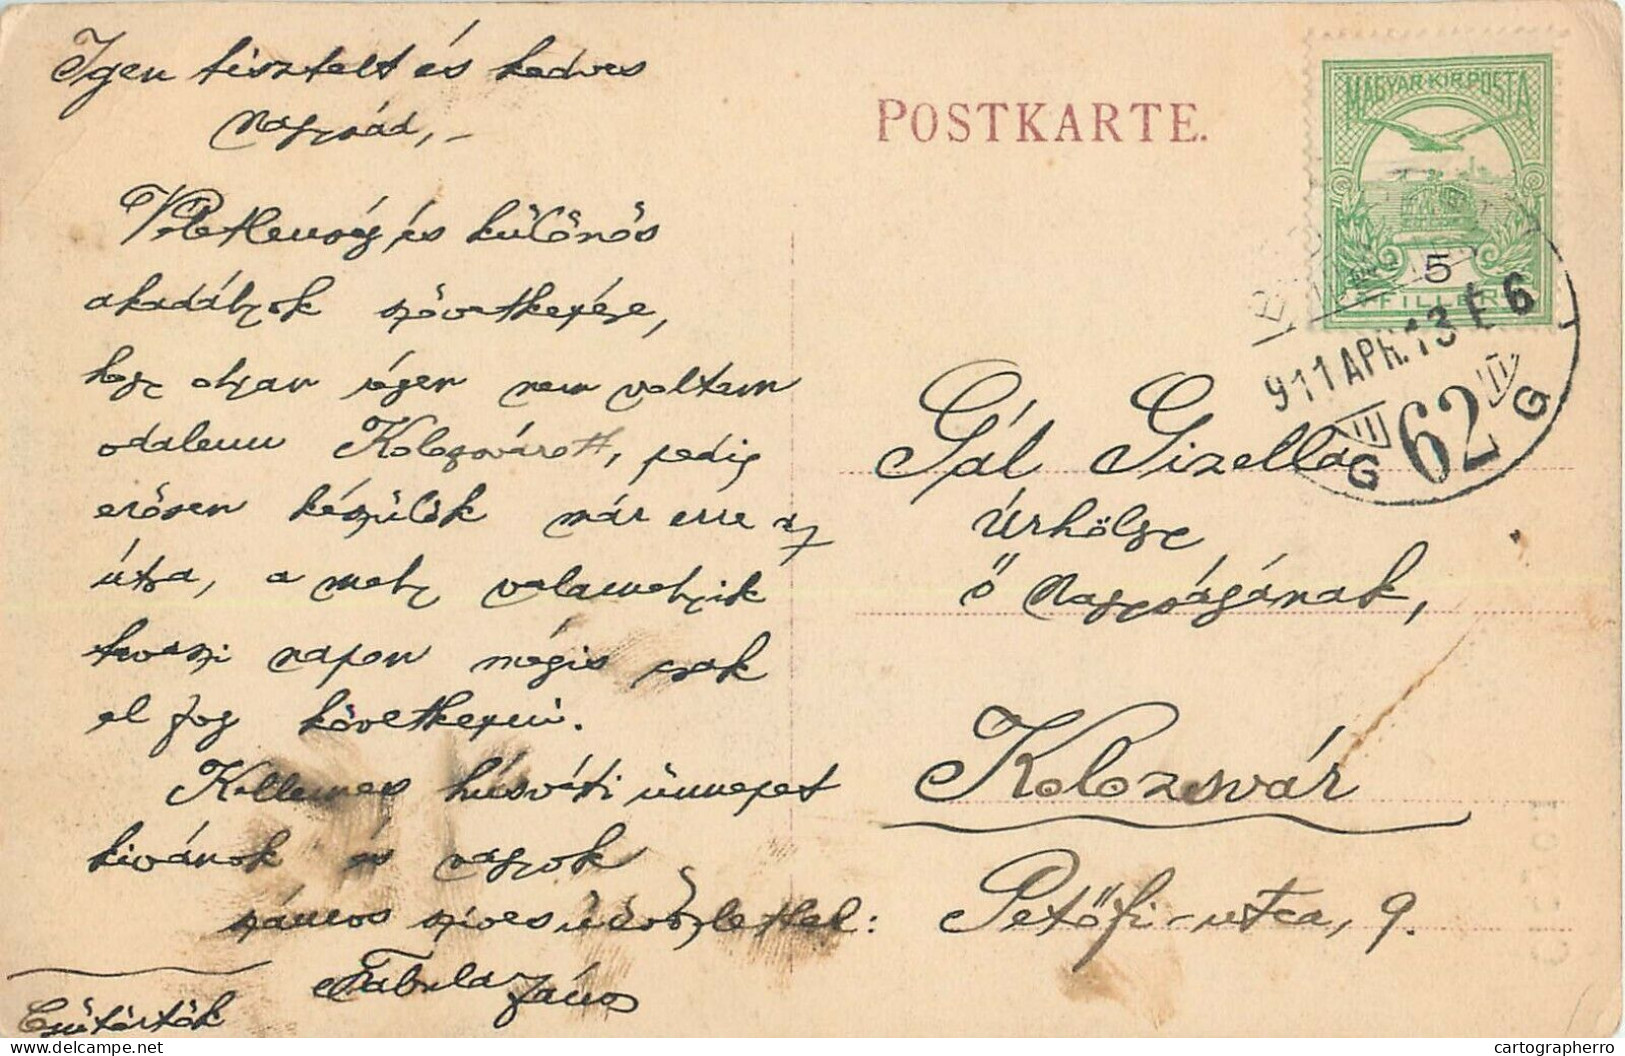 Igen tisztelt és kedves
Nagysád, –
Véletlenség és különös
akadályok következése,
hogy olyan régen nem voltam
odalenn Kolozsvárott, pedig
erősen készülök már erre az
útra, a mely valamelyik
tavaszi napon mégis csak
el fog következni.
Kellemes húsvéti ünnepet
kivánok és vagyok
számos szives üdvözlettel:
Fabula János
Csütörtök
POSTKARTE.
MAGYAR·KIR·POSTA
5
FILLÉR
911 APR. 13 É 6
62
G G
Gál Gizella
Úrhölgy
ő Nagyságának,
Kolozsvár
Petőfi-utca, 9.
delcampe.net
cartographerro